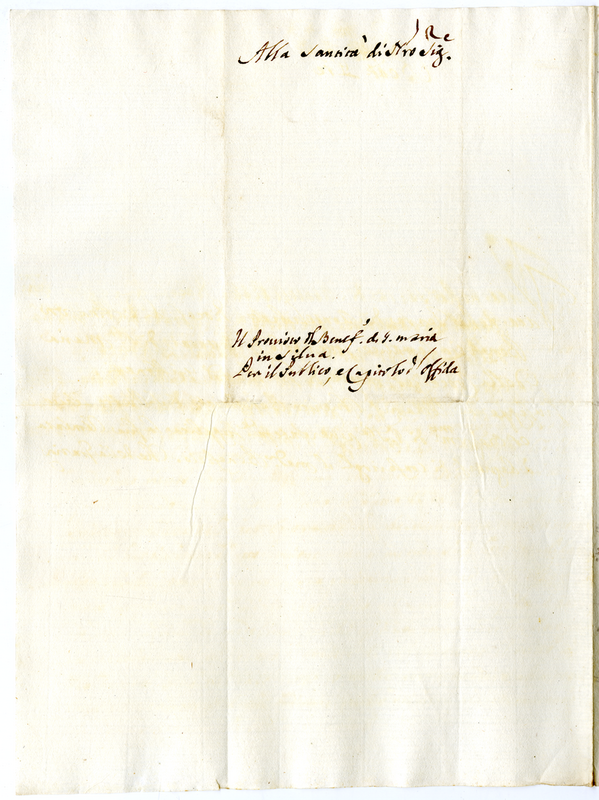 Alla Santità di Nro Sig.re
Il Provisto del Benef.o di S. Maria
in Silva.
Per il Publico, e Capitolo d'Offida